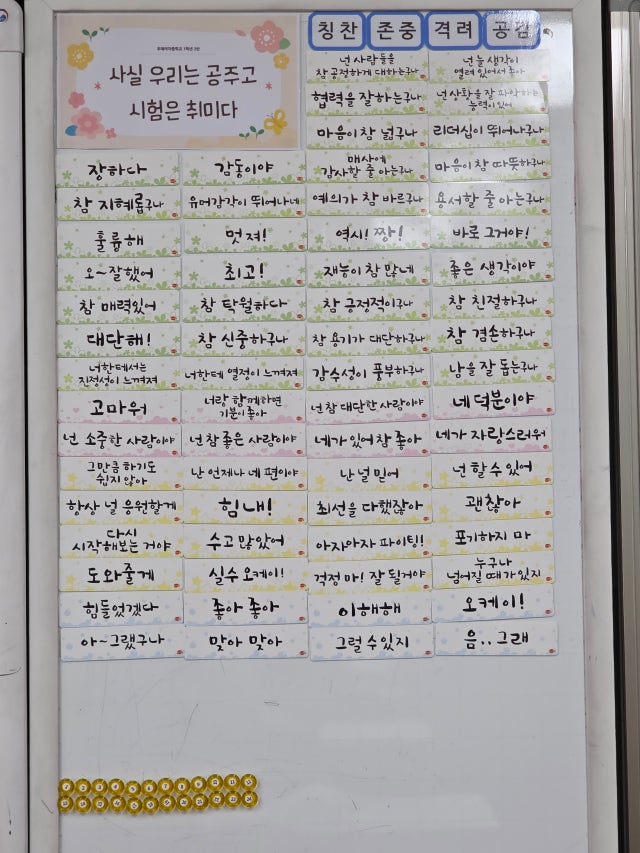 칭찬 존중 격려 공감
사실 우리는 공주고
시험은 취미다
넌 사람들을
참 공정하게 대하는구나
넌 늘 생각이
열려 있어서 좋아
협력을 잘하는구나
넌 상황을 잘 파악하는
능력이 있어
마음이 참 넓구나
리더십이 뛰어나구나
장하다
감동이야
매사에
감사할 줄 아는구나
마음이 참 따뜻하구나
참 지혜롭구나
유머감각이 뛰어나네
예의가 참 바르구나
용서할 줄 아는구나
훌륭해
멋져!
역시! 짱!
바로 그거야!
오~잘했어
최고!
재능이 참 많네
좋은 생각이야
참 매력있어
참 탁월하다
참 긍정적이구나
참 친절하구나
대단해!
참 신중하구나
참 용기가 대단하구나
참 겸손하구나
너한테서는
진정성이 느껴져
너한테 열정이 느껴져
감수성이 풍부하구나
남을 잘 돕는구나
고마워
너랑 함께하면
기분이 좋아
넌 참 대단한 사람이야
네 덕분이야
넌 소중한 사람이야
넌 참 좋은 사람이야
네가 있어 참 좋아
네가 자랑스러워
그만큼 하기도
쉽지 않아
난 언제나 네 편이야
난 널 믿어
넌 할 수 있어
항상 널 응원할게
힘내!
최선을 다했잖아
괜찮아
다시
시작해보는 거야
수고 많았어
아자아자 파이팅!
포기하지 마
도와줄게
실수 오케이!
걱정 마! 잘 될거야
누구나
넘어질 때가 있지
힘들었겠다
좋아 좋아
이해해
오케이!
아~그랬구나
맞아 맞아
그럴 수 있지
음..그래